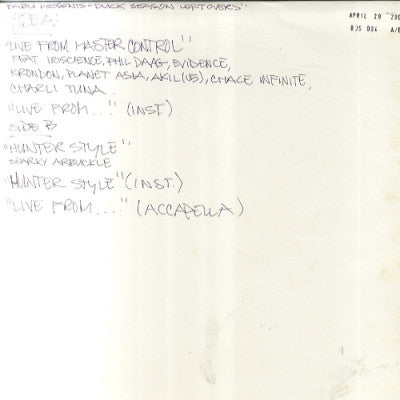 PRESENTS "DUCK SEASON LEFTOVERS"
APRIL 29
BJS 004 A/B
SIDE A:
"LIVE FROM MASTER CONTROL"
FEAT IRISCIENCE, PHIL DA AG, EVIDENCE,
KRONDON, PLANET ASIA, AKIL (J5), CHACE INFINITE,
CHARLI TUNA.
"LIVE FROM..." (INST.)
SIDE B
"HUNTER STYLE"
SPARKY ARBUCKLE
"HUNTER STYLE" (INST.)
"LIVE FROM...." (ACCAPELLA)